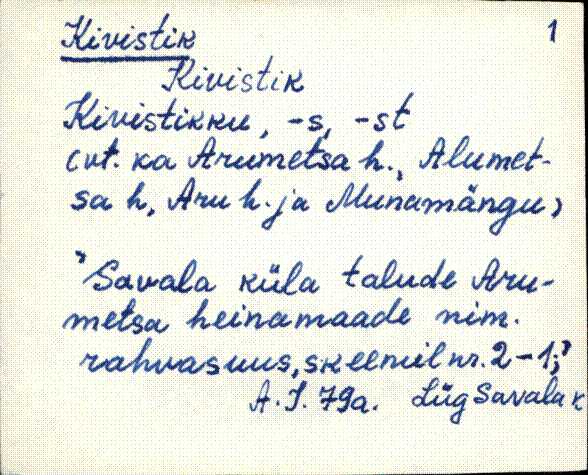 Kivistik 1
Kivistik
Kivistikku, -s, -st
(vt. ka Arumetsa h., Alumet-
sa h, Aru h. ja Munamängu)
"Savala küla talude Aru-
metsa heinamaade nim.
rahvasuus, skeemil nr. 2-1;"
A.J. 79a. Lüg Savala k